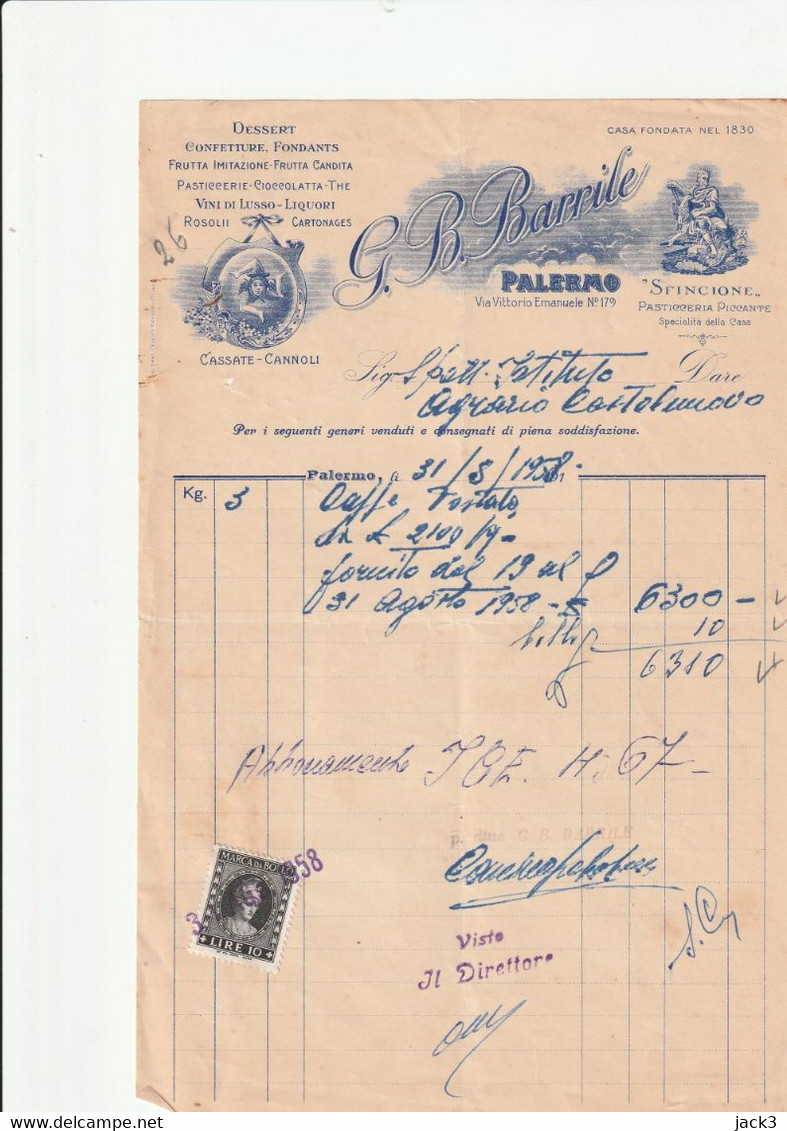 DESSERT
CONFETTURE, FONDANTS
FRUTTA IMITAZIONE-FRUTTA CANDITA
PASTICCERIE-CIOCCOLATTA-THE
VINI DI LUSSO-LIQUORI
ROSOLII CARTONAGES
CASSATE-CANNOLI
26
G. B. Barrile
PALERMO
Via Vittorio Emanuele No 179
CASA FONDATA NEL 1830
"SFINCIONE„
PASTICCERIA PICCANTE
Specialità della Casa
Sig. Spett. Istituto Dare
Agrario Castelnuovo
Per i seguenti generi venduti e consegnati di piena soddisfazione.
Palermo, li 31/8/1958
Kg. 3 Caffe Tostato
da £ 2100
fornito dal 19 al
31 Agosto 1958 - £ 6300 -
bollo 10
6310
Abbonamento I G E. N. 67 -
p. ditta G. B. BARRILE
MARCA DA BOLLO
LIRE 10
3 958
Visto
Il Direttore
jack3